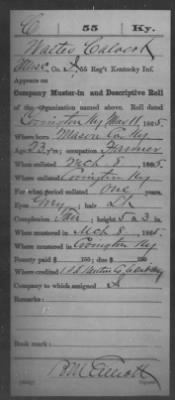 C 55 Ky.
Walter Calvert
Co. 55 Reg't Kentucky Inf.
Appears on
Company Muster-in and Descriptive Roll
of the Organization named above. Roll dated
Covington Ky Mar 11, 1865.
Where born Mason Co. Ky
Age 22 y'rs; occupation Farmer
When enlisted Mch 8, 1865.
Where enlisted Covington Ky
For what period enlisted One years.
Eyes Grey; hair Lt
Complexion Fair; height 5 ft. 3 in.
When mustered in Mch 8, 1865.
Where mustered in Covington Ky
Bounty paid $ 100; due $ 100
Where credited
Company to which assigned
Remarks:
Book mark: